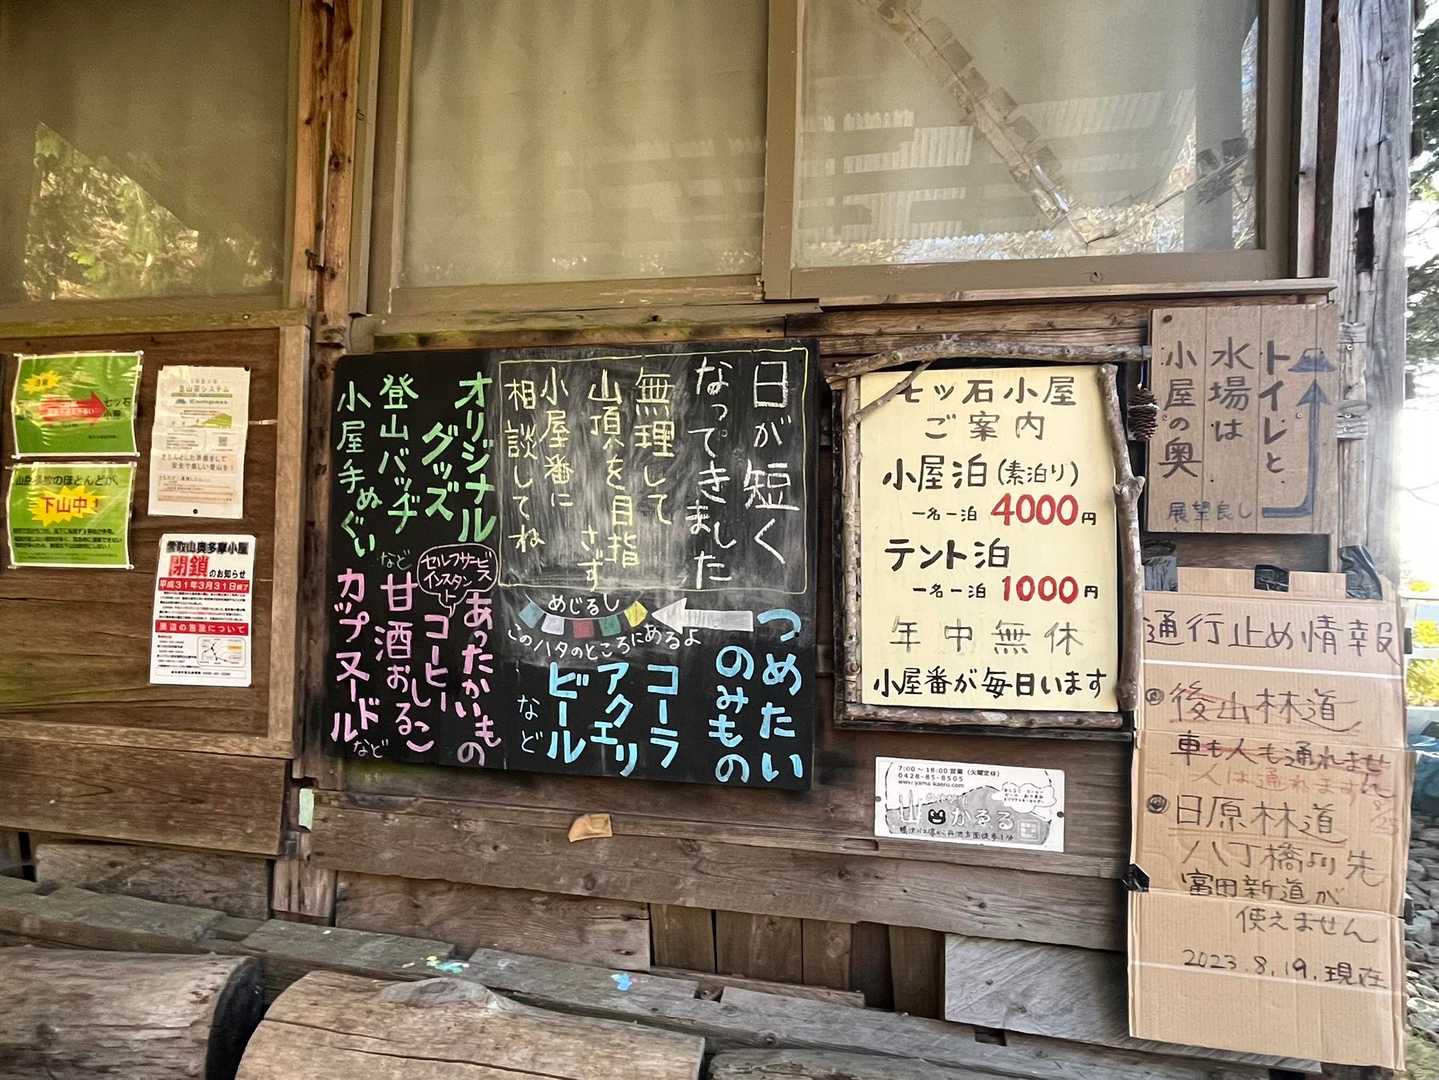 七ッ石
山岳事故のほとんどが、
下山中！
登山届システム
雲取山奥多摩小屋
閉鎖のお知らせ
平成31年3月31日終了
周辺の施設について
オリジナル
グッズ
登山バッヂ
小屋手ぬぐい
など
日が短く
なってきました
無理して
山頂を目指
さず
小屋番に
相談してね
セルフサービス
インスタント
あったかいもの
コーヒー
おしるこ
甘酒
カップヌードル
など
めじるし
このハタのところにあるよ
つめたい
のみもの
コーラ
アクエリ
ビール
など
七ッ石小屋
ご案内
小屋泊(素泊り)
一名一泊 4000円
テント泊
一名一泊 1000円
年中無休
小屋番が毎日います
トイレと
水場は
小屋の奥
展望良し
7:00～18:00営業（火曜定休）
0428-85-8505
www.yama-kaoru.com
山かるる
通行止め情報
後山林道
車も人も通れません
人は通れません
日原林道
八丁橋より先
富田新道が
使えません
2023.8.19.現在